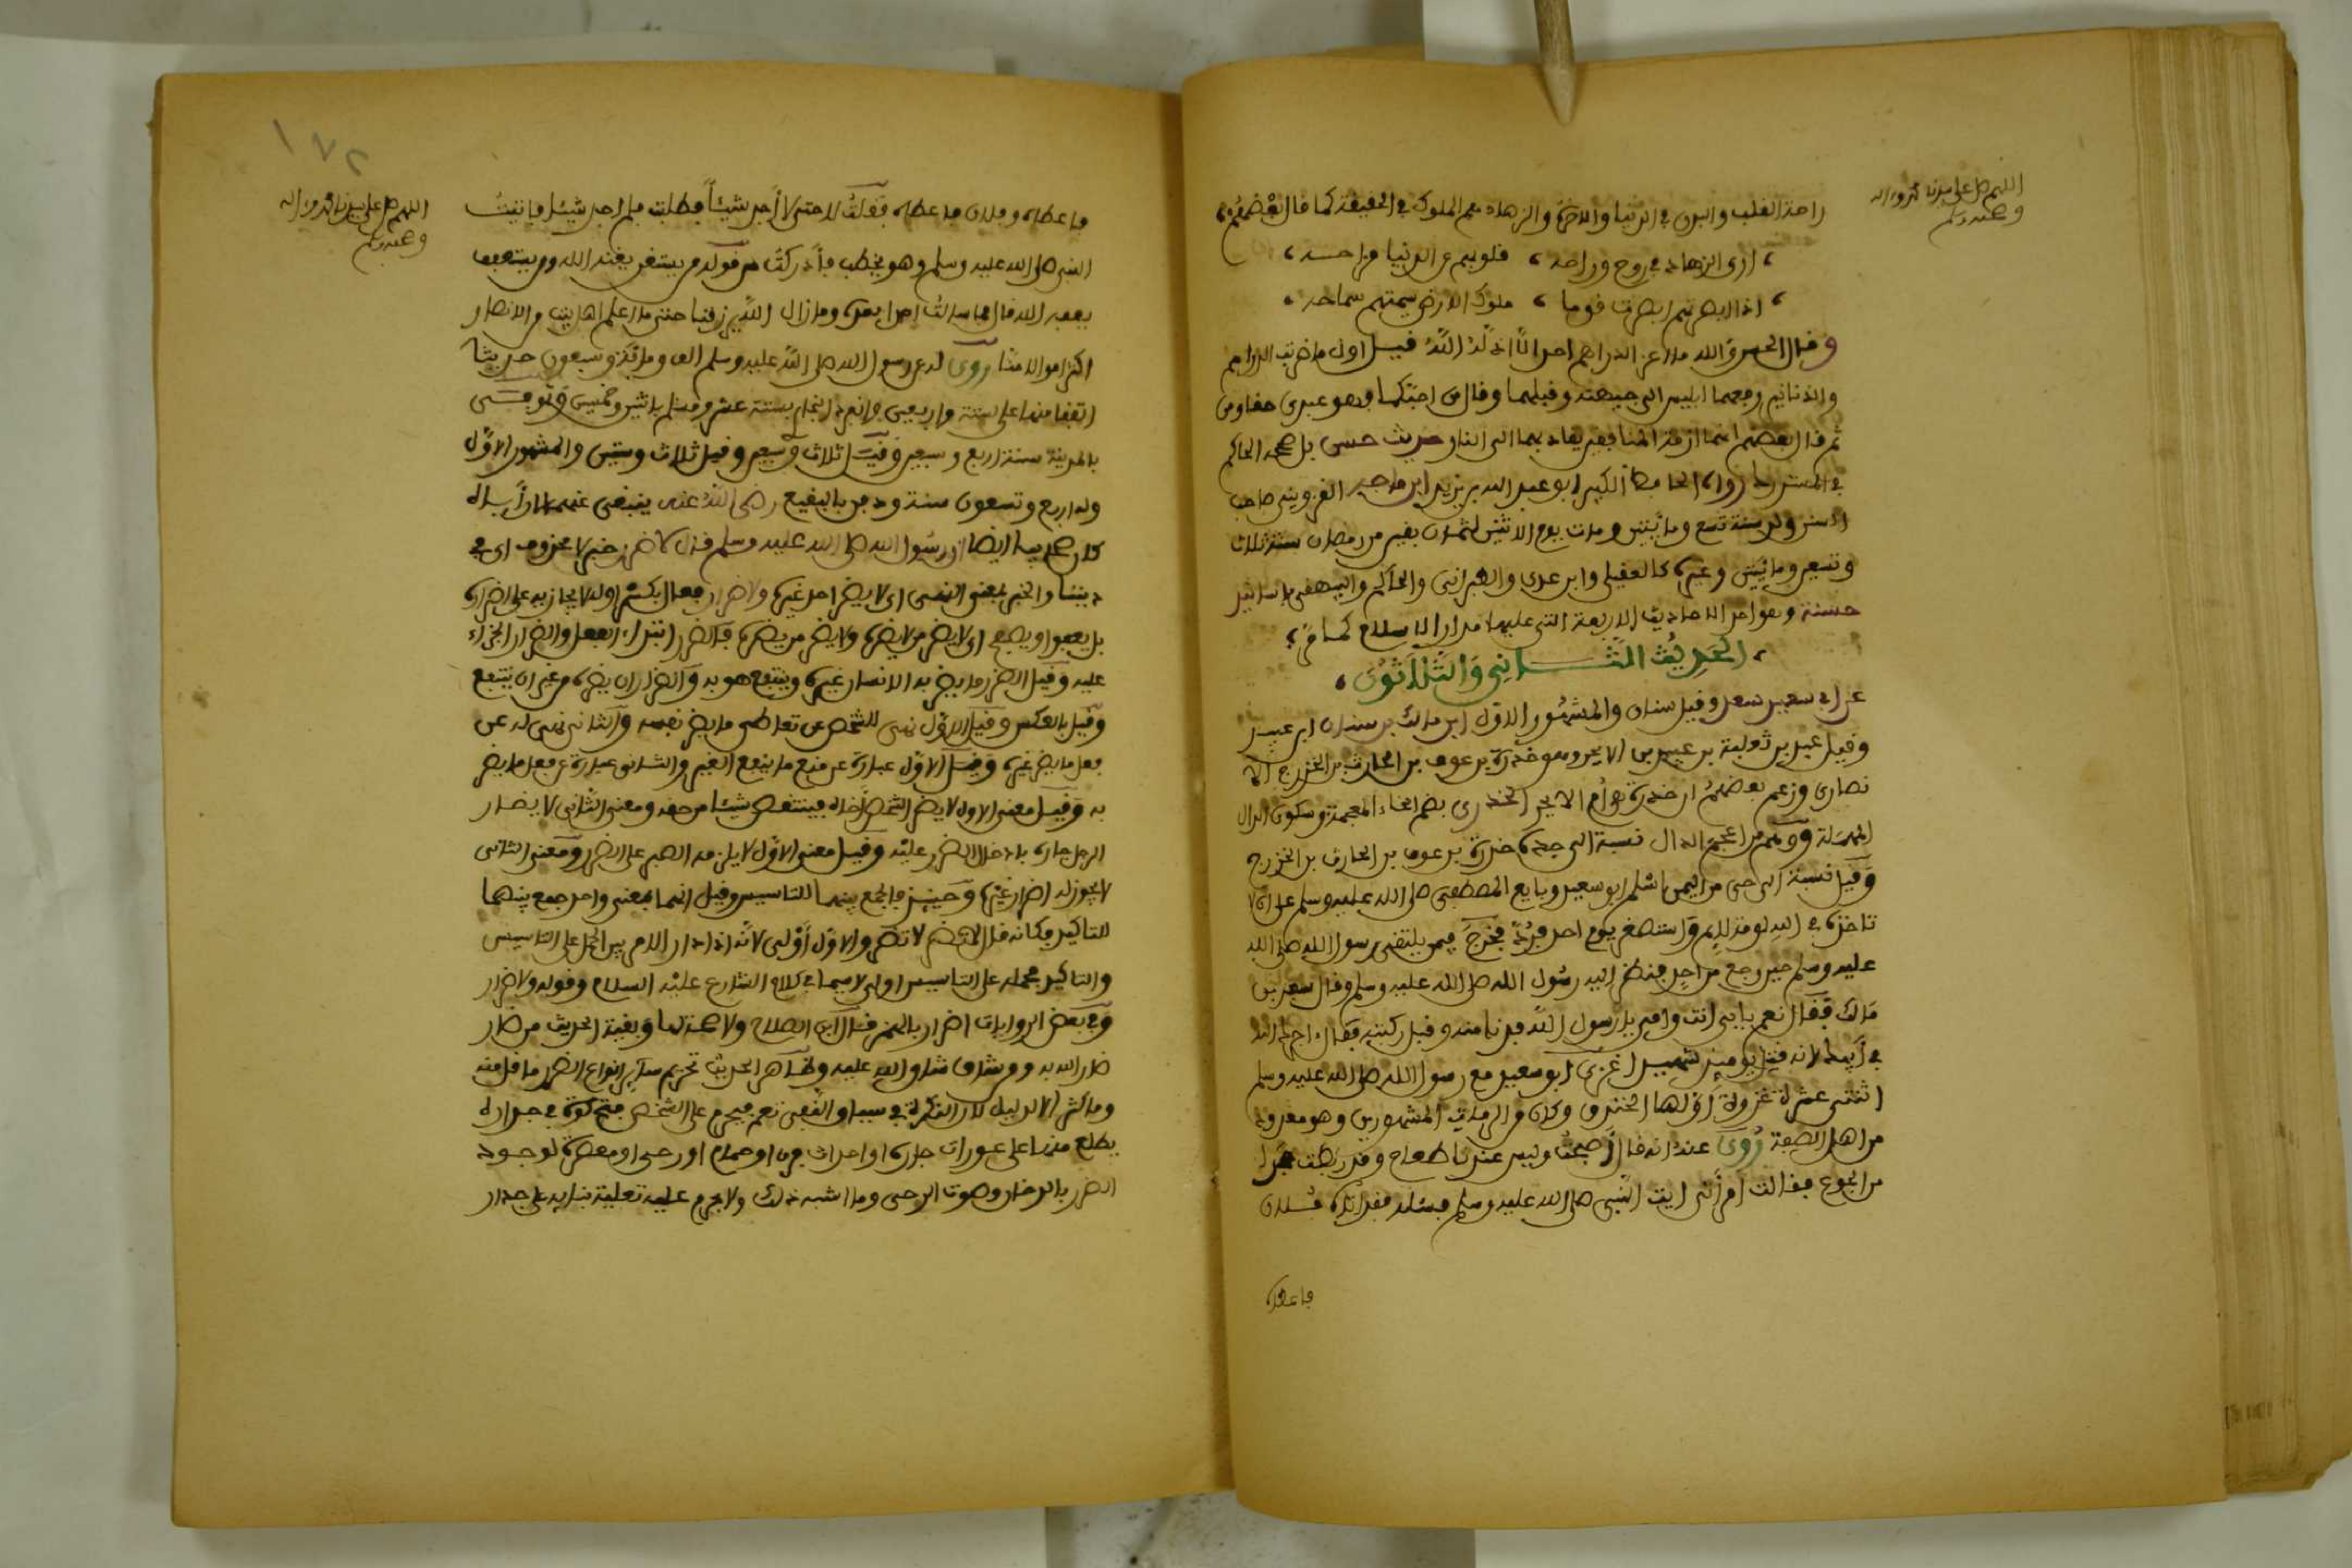 اللهم صل على سيدنا محمد وءاله
وصحبه وسلم
راحة القلب والبدن في الدنيا والاخرة والزهاد هم الملوك في الحقيقة كما قال بعضهم
ارى الزهاد في روح وراحه ، قلوبهم عن الدنيا مزاحـــه ،
اذا ابصرتهم ابصرت قوما ، ملوك الارض سمتهم سماحه ،
وقال الحسن والله ما اعز الدراهم احد الا اذله الله قيل اول ما ضربت الدراهم
والدنانير رفعهما ابليس الى جبهته وقبلهما وقال من احبكما فهو عبدي حقا ومن
ثم قال بعضهم انهما ازمة المنافقين يقاد بهما الى النار حديث حسن بل صححه الحاكم
في المستدرك رواه الحافظ الكبير ابو عبد الله بن يزيد ابن ماجه القزويني صاحب
السنن ولد سنة تسع ومائتين ومات يوم الاثنين لثمان بقين من رمضان سنة ثلاث
وسبعين ومائتين وغيره كالعقيلي وابن عدي والطبراني والحاكم والبيهقي باسانيد
حسنة وهو احد الاحاديث الاربعة التي عليها مدار الاسلام كما مر ؛
، الحديث الثـــاني والثلاثون ،
عن ابي سعيد سعد وقيل سنان والمشهور الاول ابن مالك بن سنان ابن عبيد
وقيل عبد بن ثعلبة بن عبيد بن الابجر وهو خدرة بن عوف بن الحارث بن الخزرج الا
نصاري وزعم بعضهم ان خدرة هو ام الابجر الخدري بضم الخاء المعجمة وسكون الدال
المهملة ووهم من اعجم الدال نسبة الى جده خدرة بن عوف بن الحارث بن الخزرج
وقيل نسبة الى حي من اليمن اسلم ابو سعيد وبايع المصطفى صلى الله عليه وسلم على ان لا
تاخذه في الله لومة لائم واستصغر يوم احد فرد فخرج فيمن يلتقي رسول الله صلى الله
عليه وسلم حين رجع من احد فنظر اليه رسول الله صلى الله عليه وسلم وقال سعد بن
مالك فقال نعم بابي انت وامي يا رسول الله فدنا منه وقبل ركبته فقال اجرك الله
في ابيك لانه قتل يومئذ شهيدا غزى ابو سعيد مع رسول الله صلى الله عليه وسلم
اثنتي عشرة غزوة اولها الخندق وكان من الرماة المشهورين وهو معدود
من اهل الصفة روي عنه انه قال اصبحت وليس عندنا طعام وقد ربطت حجرا
من الجوع فقالت امرأتي ايت النبي صلى الله عليه وسلم فسئله فقد اتاه فلان
فاعطاه
١٧٢
اللهم صل على سيدنا محمد وءاله
وصحبه وسلم
فاعطاه وفلان فاعطاه فقلت لا حتى لا اجد شيئا فطلبت فلم اجد شيئا فاتيت
النبي صلى الله عليه وسلم وهو يخطب فادركت من قوله من يستغن يغنه الله ومن يستعفف
يعفه الله قال فما سالت احدا بعده وما زال الله يرزقنا حتى ما اعلم اهل بيت من الانصار
اكثر اموالا منا روي له عن رسول الله صلى الله عليه وسلم الف ومائة وسبعون حديثا
اتفقا منها على ستة واربعين وانفرد البخاري بستة عشر ومسلم باثنين وخمسين وتوفي
بالمدينة سنة اربع وسبعين وقيل ثلاث وسبعين وقيل ثلاث وستين والمشهور الاول
وله اربع وتسعون سنة ودفن بالبقيع رضي الله عنه
ان رسول الله صلى الله عليه وسلم قال لا ضرر خبر لا محذوف اي في
ديننا والخبر بمعنى النهي اي لا يضر احد غيره ولا ضرار فعال بكسر اوله لا يجازيه على اضراره
بل يعفو او يصفح اي لا يضر من لا يضره ولا يضر من يضره فالضرر ابتداء الفعل والضرار الجزاء
عليه وقيل الضرر ما يضر به الانسان غيره وينتفع هو به والضرار ان يضره من غير ان ينتفع
وقيل بالعكس وقيل الاول نهي للشخص عن تعاطي ما يضر نفسه والثاني نهي له عن
فعل ما يضر غيره وقيل الاول عبارة عن منع ما ينفع الغير والثاني عبارة عن فعل ما يضر
به وقيل معنى الاول لا يضر الشخص اخاه فينتقص شيئا من حقه ومعنى الثاني لا يضار
الرجل جاره بادخال الضرر عليه وقيل معنى الاول لا يلزمه الصبر على الضرر ومعنى الثاني
لا يجوز له اضرار غيره وحينئذ فالجمع بينهما للتاسيس وقيل انهما بمعنى واحد جمع بينهما
للتاكيد فكانه قال لا تضر لا تضر والاول أولى لانه اذا دار الامر بين الحمل على التاسيس
والتاكيد فحمله على التاسيس اولى لا سيما في كلام الشارع عليه السلام وقوله ولا ضرار
وفي بعض الروايات اضرار بالهمز قال ابن الصلاح ولا صحة لها وبقية الحديث من ضار
ضار الله به ومن شاق شاق الله عليه وظاهر الحديث تحريم سائر انواع الضرر ما قل منه
وما كثر الا لدليل لان النكرة في سياق النفي تعم فيحرم على الشخص فتح كوة في جداره
يطلع منها على عورات جاره او احداث فرن او حمام او رحى او معصرة لوجود
الضرر بالدخان وصوت الرحى وما اشبه ذلك ولا يحرم عليه تعلية بنائه على جدار